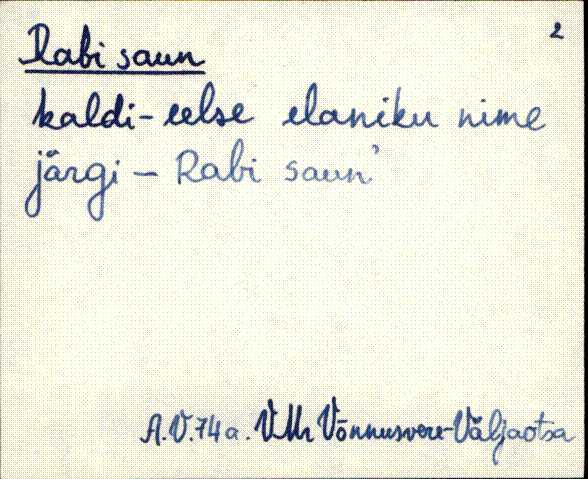 2
Rabi saun
kaldi-eelse elaniku nime
järgi – Rabi saun'
A.V. 74a. VMr Võnnusvere-Väljaotsa